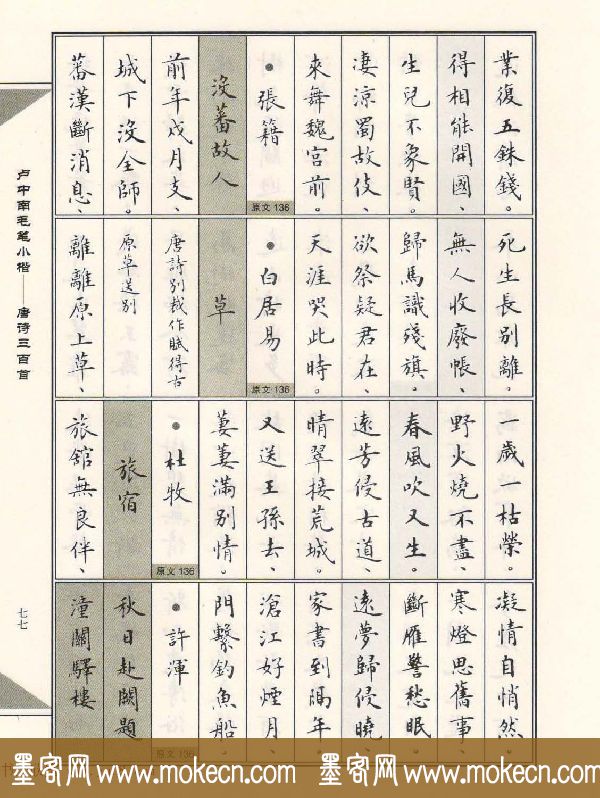 業復五銖錢。
得相能開國、
生兒不象賢。
凄涼蜀故伎、
來舞魏宮前。
•張籍
原文 136
沒蕃故人
前年戍月支、
城下沒全師。
蕃漢斷消息、
死生長別離。
無人收廢帳、
歸馬識殘旗。
欲祭疑君在、
天涯哭此時。
•白居易
原文 136
草
唐詩別裁作賦得古
原草送別
離離原上草、
一歲一枯榮。
野火燒不盡、
春風吹又生。
遠芳侵古道、
晴翠接荒城。
又送王孫去、
萋萋滿別情。
•杜牧
原文 136
旅宿
旅館無良伴、
凝情自悄然。
寒燈思舊事、
斷雁警愁眠。
遠夢歸侵曉、
家書到隔年。
滄江好煙月、
門繫釣魚船。
•許渾
原文 136
秋日赴闕題
潼關驛樓
卢中南毛笔小楷——唐诗三百首
七七
墨客网 www.mokecn.com 墨客网 www.mokecn.com